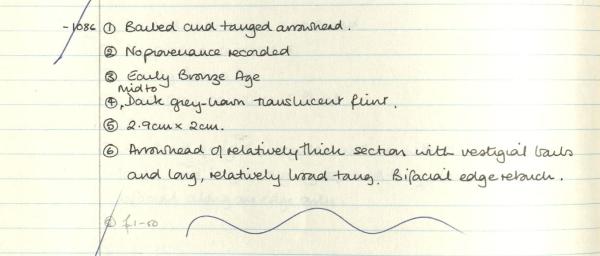 -1086 ① Barbed and tanged arrowhead.
② No provenance recorded
③ Early Bronze Age
mid to
④ Dark grey-brown translucent flint.
⑤ 2.9cm x 2cm.
⑥ Arrowhead of relatively thick section with vestigial barbs
and long, relatively broad tang. Bifacial edge retouch.
£1-50